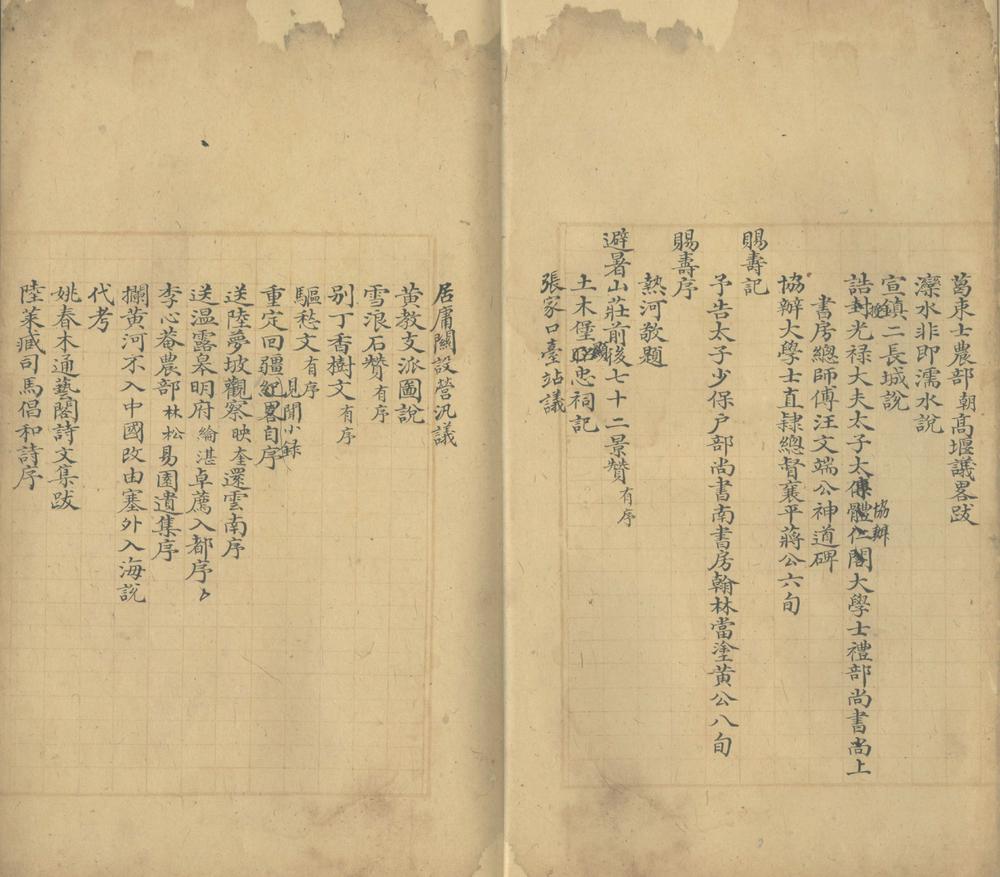 葛東士農部朝高堰議畧跋
灤水非即濡水說
宣鎮二長城說
誥封光禄大夫太子太傅體仁閣大學士禮部尚書尚上
協辦
書房總師傅汪文端公神道碑
協辦大學士直隸總督襄平蔣公六旬
賜壽記
予告太子少保戶部尚書南書房翰林當塗黃公八旬
賜壽序
熱河敬題
避暑山莊前後七十二景贊有序
土木堡忠祠記
張家口臺站議
居庸關設營汛議
黃教支派圖說
雪浪石贊有序
別丁香樹文有序
驅愁文有序
見聞小録
重定回疆畧自序
送陸夢坡觀察映奎還雲南序
送温露皋明府綸湛卓薦入都序
李心菴農部林松易園遺集序
攔黃河不入中國改由塞外入海說
代考
姚春木通藝閣詩文集跋
陸萊臧司馬倡和詩序